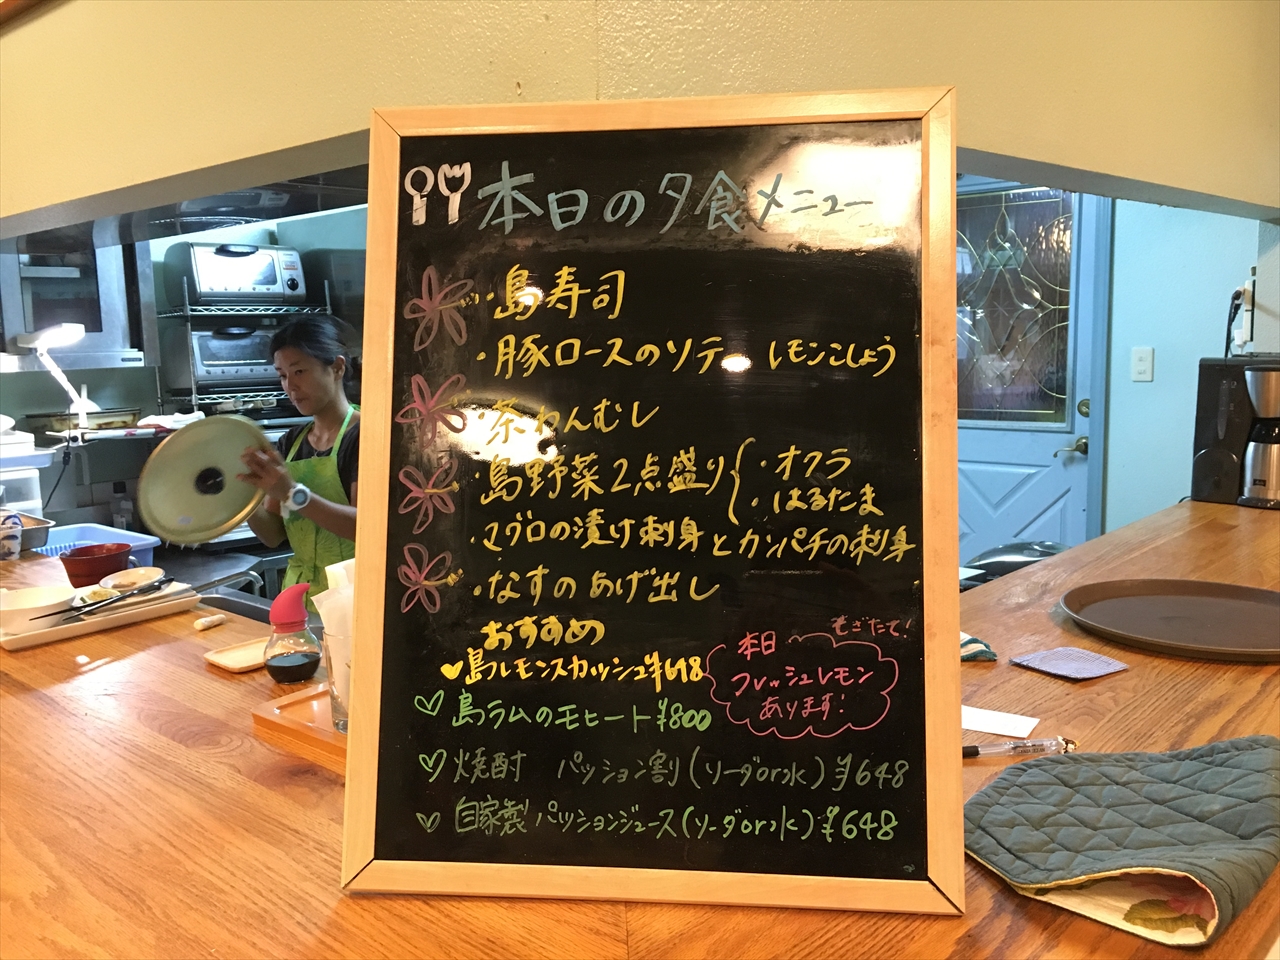 本日の夕食メニュー
・島寿司
・豚ロースのソテー レモンこしょう
・茶わんむし
・島野菜2点盛り{・オクラ
・はるたま
・マグロの漬け刺身とカンパチの刺身
・なすのあげ出し
おすすめ
♥島レモンスカッシュ¥648
本日〜もぎたて!
フレッシュレモン
あります!
♡島ラムのモヒート¥800
♡焼酎 パッション割(ソーダor水)¥648
♡自家製パッションジュース(ソーダor水)¥648